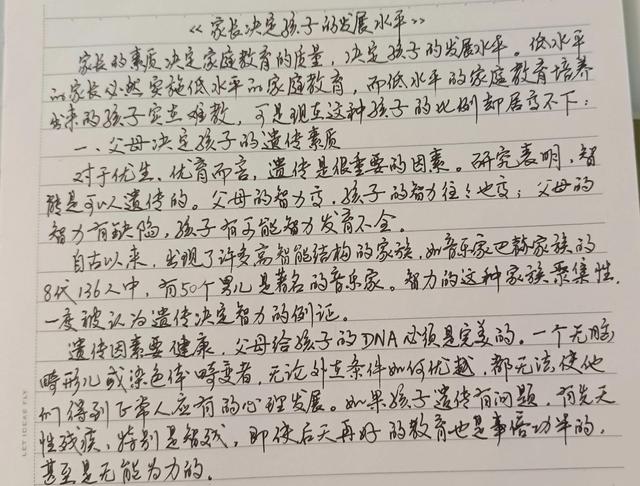 《家长决定孩子的发展水平》
家长的素质决定家庭教育的质量，决定孩子的发展水平。低水平
的家长必然实施低水平的家庭教育，而低水平的家庭教育培养
出来的孩子实在难教，可是现在这种孩子的比例却居高不下：
一、父母决定孩子的遗传素质
对于优生、优育而言，遗传是很重要的因素。研究表明，智
能是可以遗传的。父母的智力高，孩子的智力往々也高；父母的
智力有缺陷，孩子有可能智力发育不全。
自古以来，出现了许多高智能结构的家族，如音乐家巴赫家族的
8代136人中，有50个男儿是著名的音乐家。智力的这种家族聚集性，
一度被认为遗传决定智力的例证。
遗传因素要健康，父母给孩子的DNA必须是完美的。一个无脑
畸形儿或染色体畸变者，无论外在条件如何优越，都无法使他
们得到正常人应有的心理发展。如果孩子遗传有问题，有先天
性残疾，特别是智残，即使后天再好的教育也是事倍功半的，
甚至是无能为力的。
LET IDEAS FLY